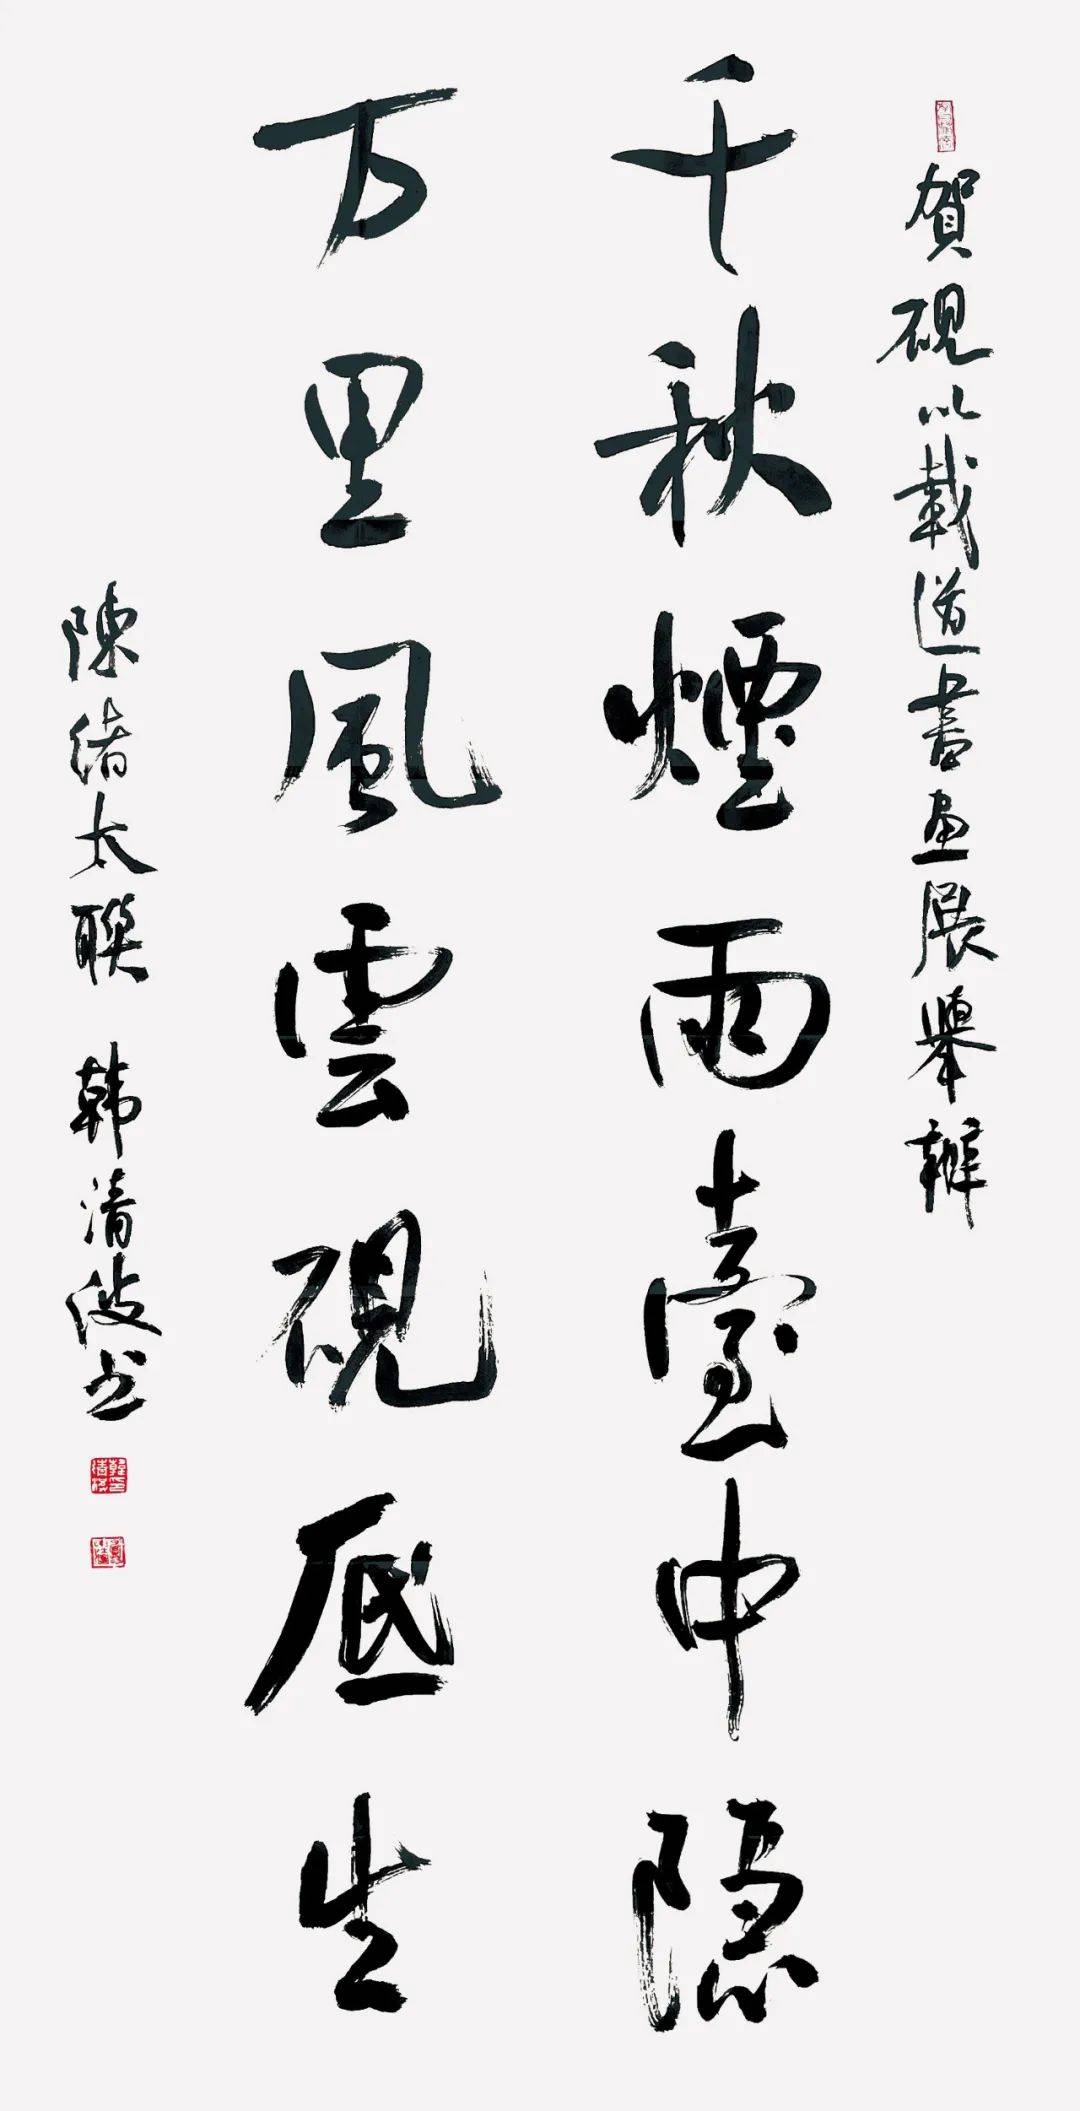 賀硯以載道書画展舉辦
千秋煙雨臺中隱
万里風雲硯底生
陳緒太聯 韩清波书